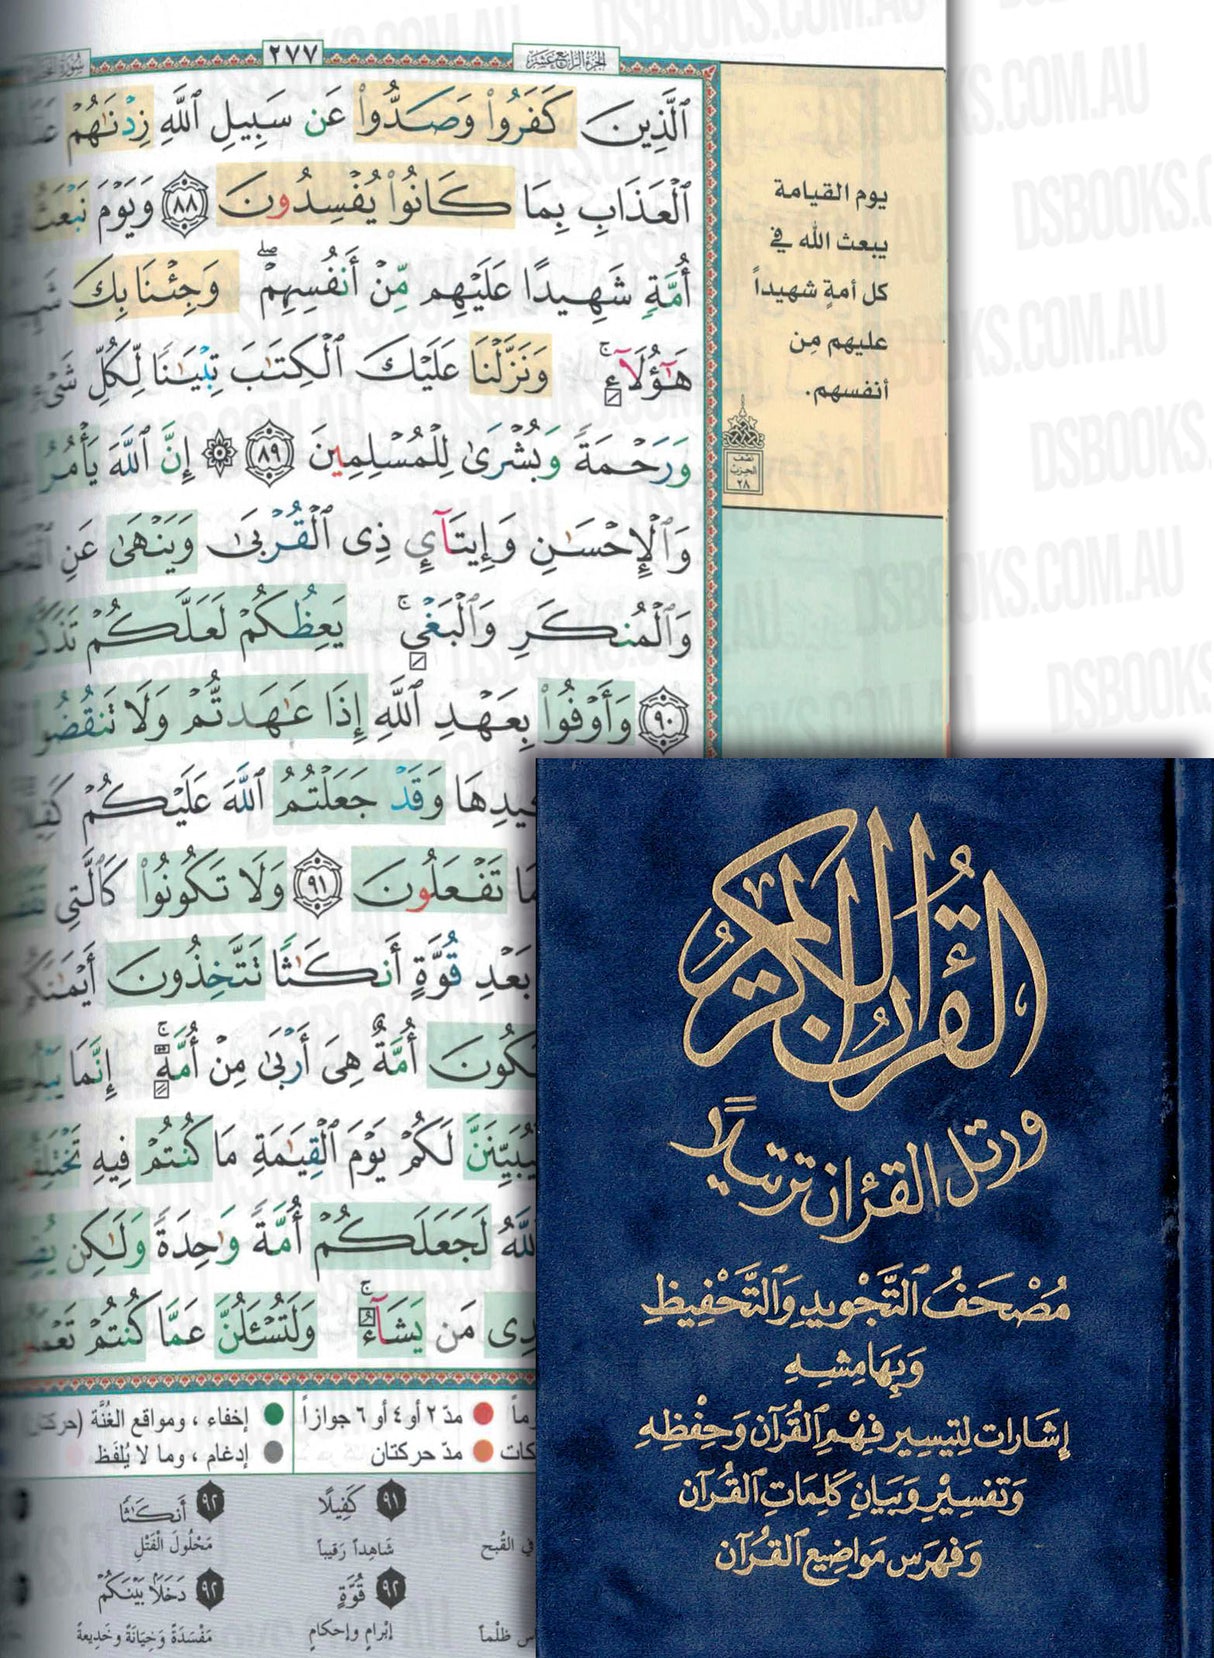 الجزء الرابع عشر
٢٧٧
سورة
ٱلَّذِينَ كَفَرُوا۟ وَصَدُّوا۟ عَن سَبِيلِ ٱللَّهِ زِدْنَٰهُمْ
ٱلْعَذَابِ بِمَا كَانُوا۟ يُفْسِدُونَ ٨٨ وَيَوْمَ نَبْعَثُ
أُمَّةٍ شَهِيدًا عَلَيْهِم مِّنْ أَنفُسِهِمْ ۖ وَجِئْنَا بِكَ
هَٰٓؤُلَآءِ ۚ وَنَزَّلْنَا عَلَيْكَ ٱلْكِتَٰبَ تِبْيَٰنًا لِّكُلِّ شَىْءٍ
وَرَحْمَةً وَبُشْرَىٰ لِلْمُسْلِمِينَ ٨٩ ۞ إِنَّ ٱللَّهَ يَأْمُرُ
وَٱلْإِحْسَٰنِ وَإِيتَآئِ ذِى ٱلْقُرْبَىٰ وَيَنْهَىٰ عَنِ
وَٱلْمُنكَرِ وَٱلْبَغْىِ ۚ يَعِظُكُمْ لَعَلَّكُمْ تَذَكَّرُونَ
٩٠ وَأَوْفُوا۟ بِعَهْدِ ٱللَّهِ إِذَا عَٰهَدتُّمْ وَلَا تَنقُضُوا۟
وَقَدْ جَعَلْتُمُ ٱللَّهَ عَلَيْكُمْ كَفِيلًا
تَفْعَلُونَ ٩١ وَلَا تَكُونُوا۟ كَٱلَّتِى
بَعْدِ قُوَّةٍ أَنكَٰثًا تَتَّخِذُونَ أَيْمَٰنَكُمْ
أُمَّةٌ هِىَ أَرْبَىٰ مِنْ أُمَّةٍ ۚ إِنَّمَا
لَكُمْ يَوْمَ ٱلْقِيَٰمَةِ مَا كُنتُمْ فِيهِ تَخْتَلِفُونَ
لَجَعَلَكُمْ أُمَّةً وَٰحِدَةً وَلَٰكِن
مَن يَشَآءُ ۚ وَلَتُسْـَٔلُنَّ عَمَّا كُنتُمْ تَعْمَلُونَ
يوم القيامة
يبعث الله في
كل أمةٍ شهيداً
عليهم مِن
أنفسهم.
نصف
الحزب
٢٨
مدّ ٢ أو ٤ أو ٦ جوازاً
إخفاء ، ومواقع الغُنَّة (حركتان
مدّ حركتان
إدغام ، وما لا يُلفَظ
٩١ كَفِيلًا
٩٢ أَنكَٰثًا
في القُبح
شَاهِداً رَقيباً
مَحْلُولَ الْفَتْلِ
٩٢ قُوَّةٍ
٩٢ دَخَلًۢا بَيْنَكُمْ
ظلْماً
إبْرام وإحكام
مَفْسَدَةً وَخِيَانَةً وَخَدِيعةً
القرآن الكريم
ورتل القرءان ترتيلا
مُصْحَفُ التَّجْوِيدِ وَالتَّحْفِيظِ
وَبِهَامِشِهِ
إِشَارات لِتيسِير فِهْمِ القُرآن وَحِفْظِه
وَتفسِيْرِ وَبَيانِ كَلِمَاتِ القُرآن
وَفهرَس مَوَاضِيع القُرآن
DSBOOKS.COM.AU